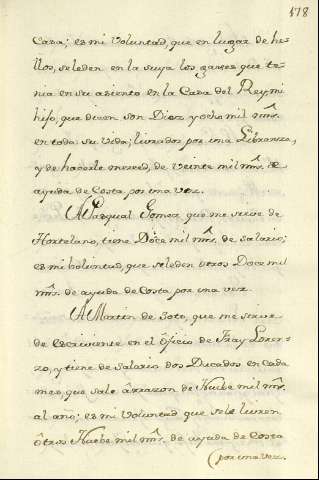 178
Casa; es mi Voluntad, que en lugar de he-
llos, se le den en la suya los gages que te-
nia en su asiento en la Casa del Rey, mi
hijo, que dicen son Diez y ocho mil mrs.
en toda su Vida; librados por una Libranza,
y de hacerle merced, de veinte mil mrs. de
ayuda de Costa por una vez.
A Pasqual Gomez que me sirve de
Hortelano, tiene Doce mil mrs. de salario;
es mi boluntad, que se le den otros Doce mil
mrs. de ayuda de Costa por una vez.
A Martin de Soto, que me sirve
de escriviente en el oficio de Fray Loren-
zo, y tiene de Salario dos Ducados en cada
mes, que sale à rrazon de Nuebe mil mrs.
al año; es mi Voluntad que se le libren
ôtros Nuebe mil mrs. de ayuda de Costa
por una vez.